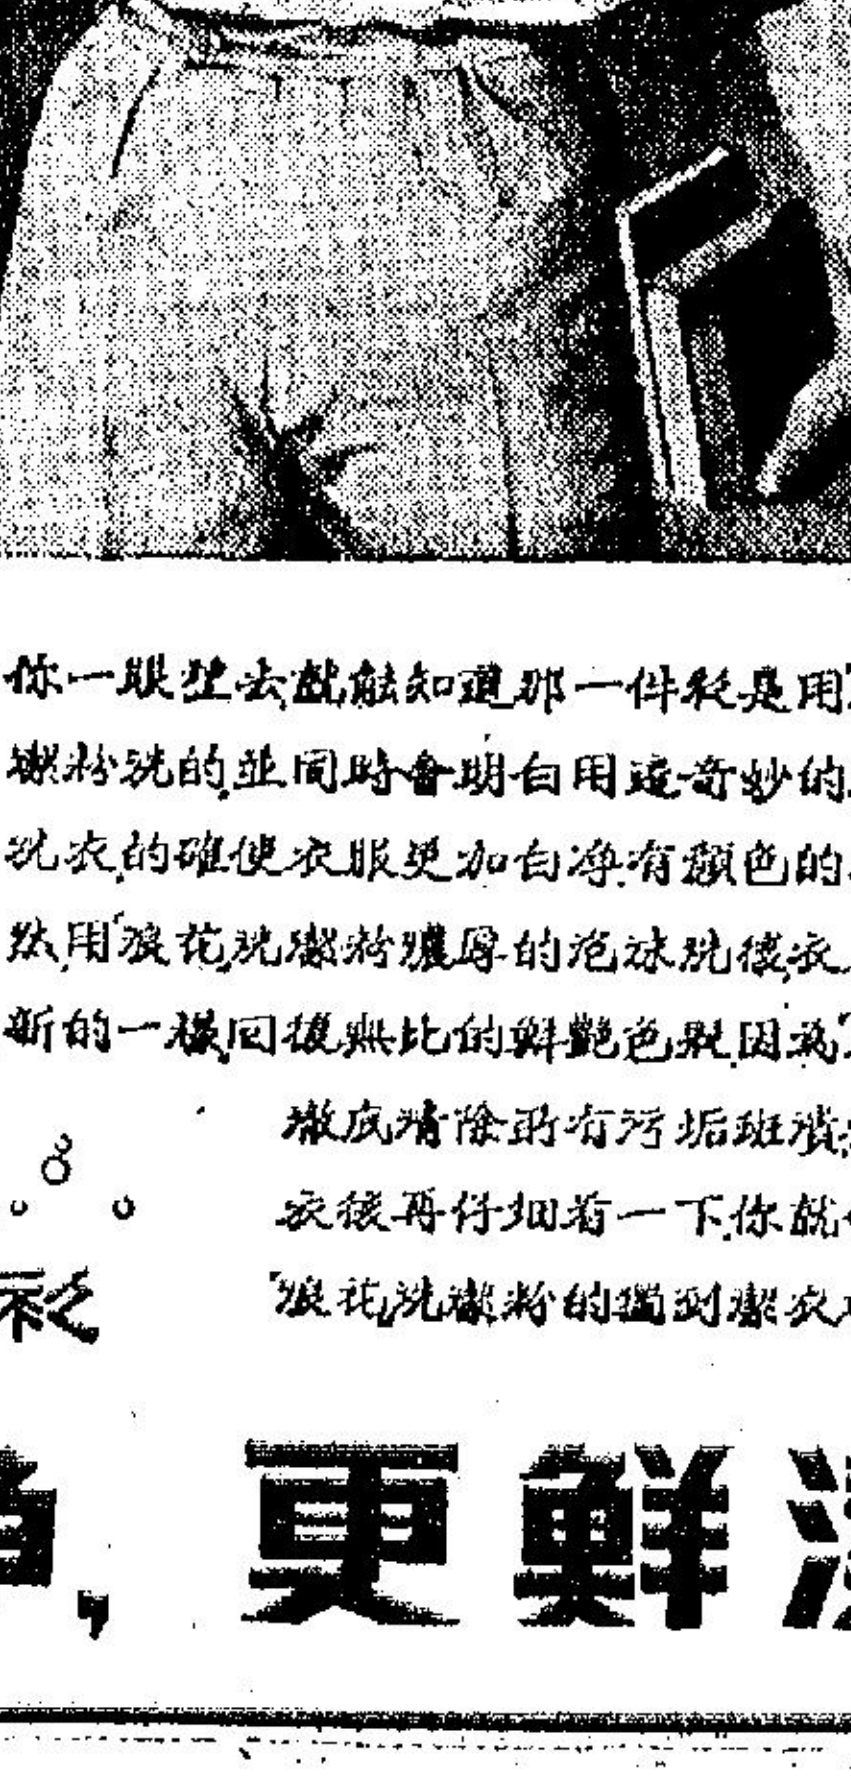 你一眼望去,就能知道那一件衫是用
潔粉洗的,並同時會明白用這奇妙的
洗衣,的確使衣服更加白淨,有顏色的
然,用'浪花,洗潔粉濃厚的泡沫洗後,衣
新的一樣,回復無比的鮮艷色澤,因為'
澈底清除所有污垢斑漬
衣後再仔細看一下,你就
'浪花,洗潔粉的獨到潔衣
更鮮